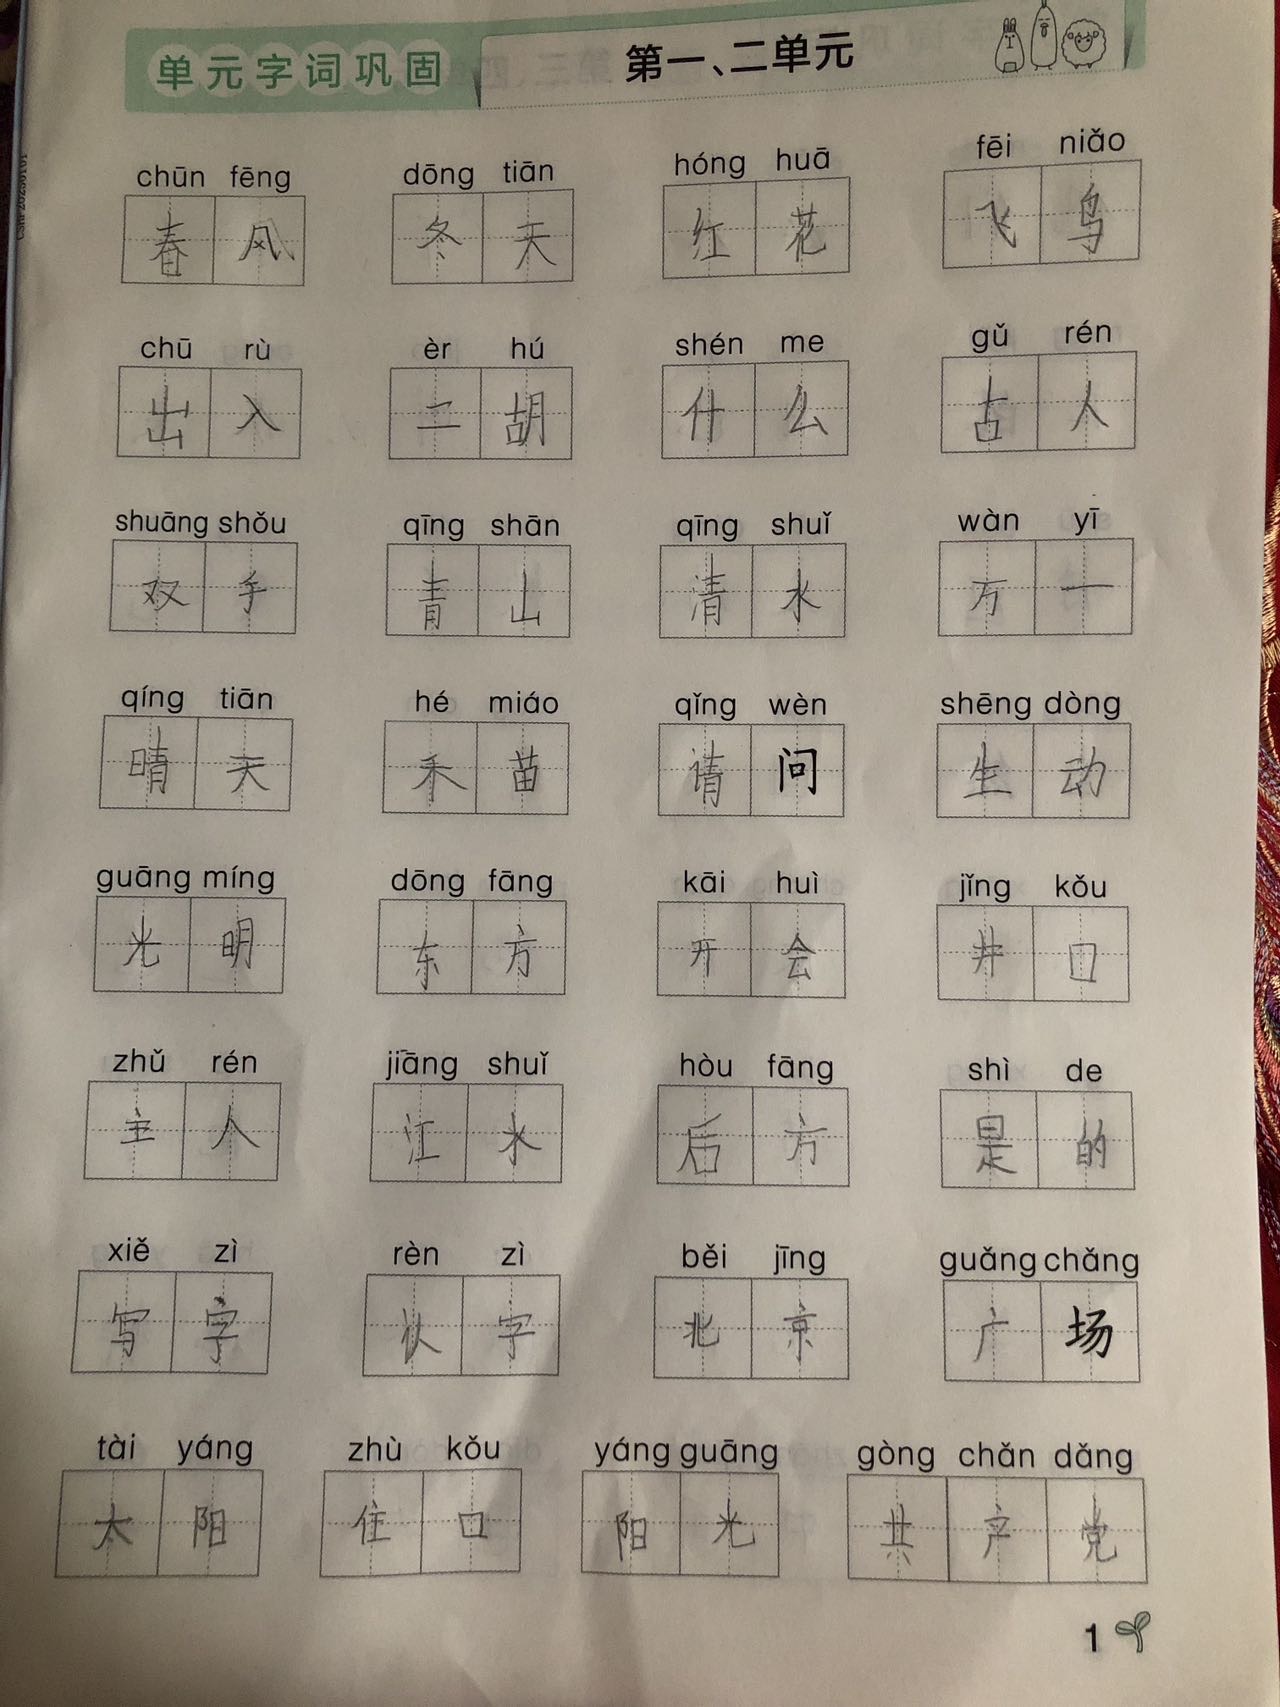 单元字词巩固 第一、二单元
chūn fēng dōng tiān hóng huā fēi niǎo
春风 冬天 红花 飞鸟
chū rù èr hú shén me gǔ rén
出入 二胡 什么 古人
shuāng shǒu qīng shān qīng shuǐ wàn yī
双手 青山 清水 万一
qíng tiān hé miáo qǐng wèn shēng dòng
晴天 禾苗 请问 生动
guāng míng dōng fāng kāi huì jǐng kǒu
光明 东方 开会 井口
zhǔ rén jiāng shuǐ hòu fāng shì de
主人 江水 后方 是的
xiě zì rèn zì běi jīng guǎng chǎng
写字 认字 北京 广场
tài yáng zhù kǒu yáng guāng gòng chǎn dǎng
太阳 住口 阳光 共产党
1